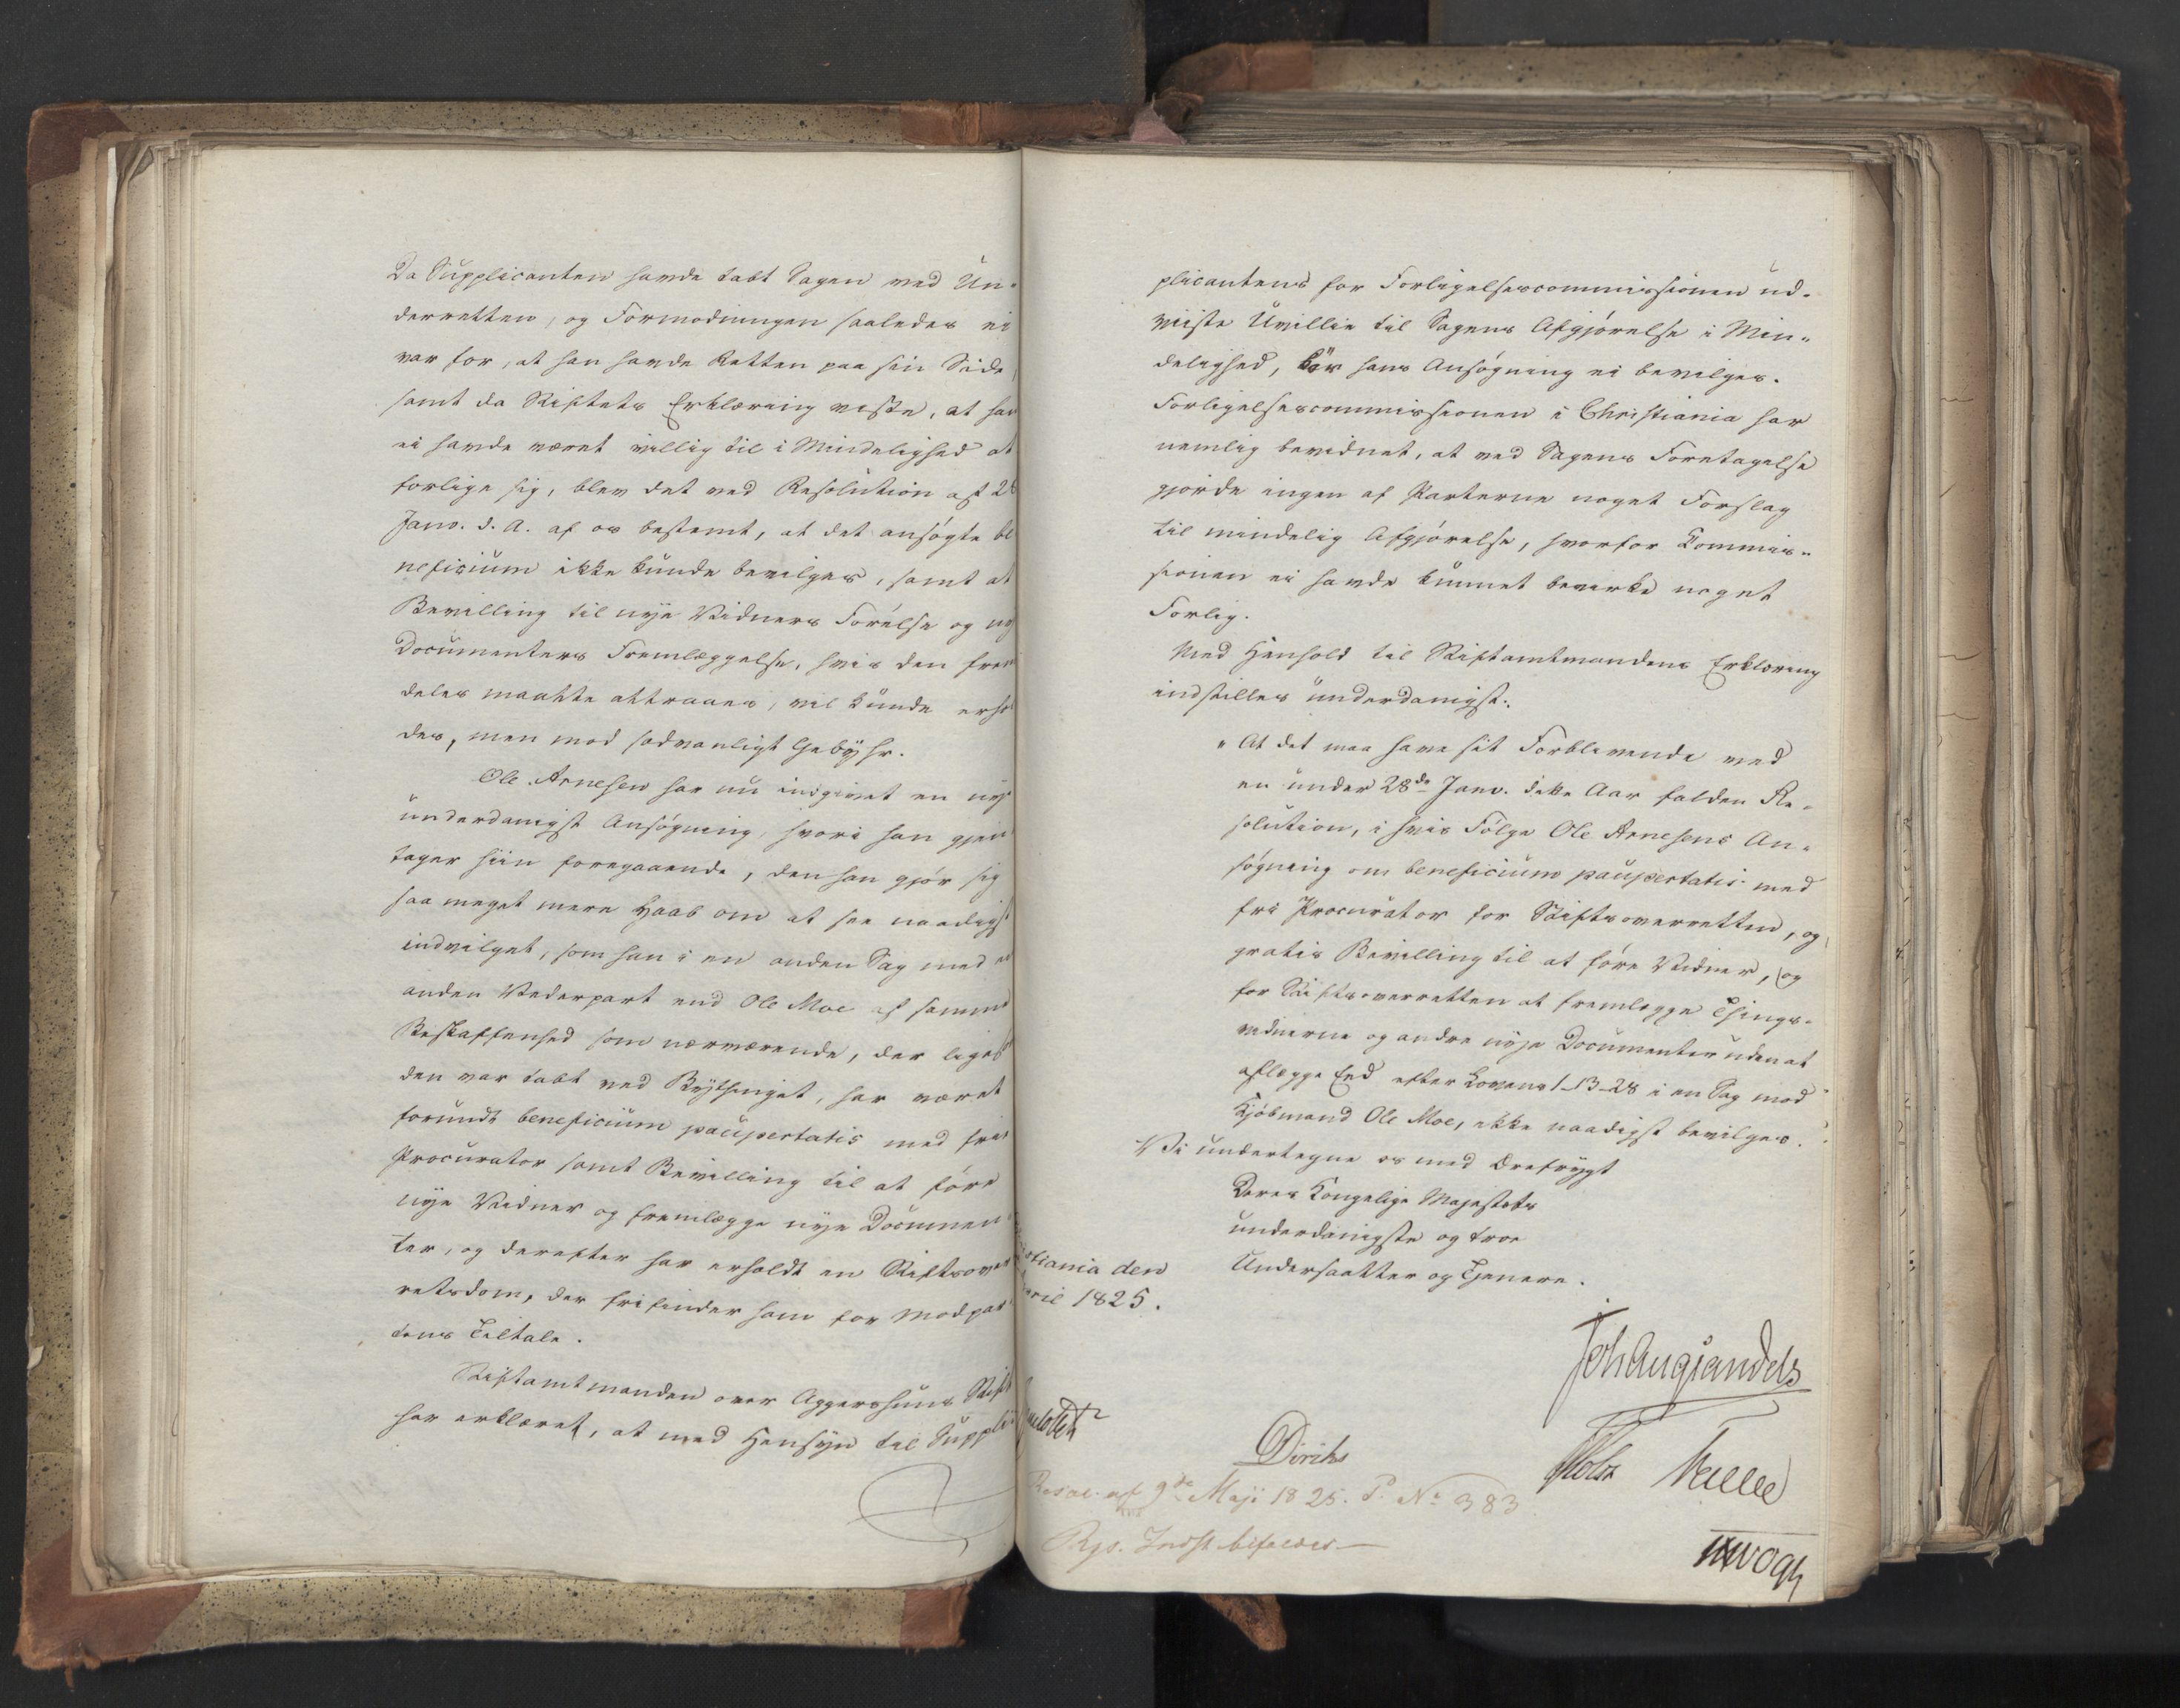 Da Supplicanten havde tabt Sagen ved Un-
derretten, og Formodningen saaledes ei
var for, at han havde Retten paa sin Side,
samt da Stiftets Erklæring viste, at han
ei havde været villig til i Mindelighed at
forlige sig, blev det ved Resolution af 28
Janv. d. A. af os bestemt, at det ansøgte be
neficium ikke kunde bevilges, samt at
Bevilling til nye Vidners Førelse og nye
Documenters Fremlæggelse, hvis den frem
deles maatte attraaes, vil kunde erhol
des, men mod sædvanligt Gebyhr.
Ole Arnesen har nu indgivet en ny
underdanigst Ansøgning, hvori han gjen
tager hiin foregaaende, den han gjør sig
saa meget mere Haab om at see naadigst
indvilget, som han i en anden Sag med en
anden Vederpart end Ole Moe af samme
Beskaffenhed som nærværende, der ligele
den var tabt ved Bythinget, har været
forundt beneficium paupertatis med frie
Procurator samt Bevilling til at føre
nye Vidner og fremlægge nye Documen-
ter, og derefter har erholdt en Stiftsover
retsdom, der frifinder ham for Modpar
tens Tiltale.
Stiftamtmanden over Aggershuus Stift
har erklæret, at med Hensyn til Suppli
plicantens for Forligelsescommissionen ud-
viiste Uvillie til Sagens Afgjørelse i Min-
delighed, bør hans Ansøgning ei bevilges.
Forligelsescommissionen i Christiania har
nemlig bevidnet, at ved Sagens Foretagelse
gjorde ingen af Parterne noget Forslag
til mindelig Afgjørelse, hvorfor Commis-
sionen ei havde kunnet bevirke noget
Forlig.
Med Henhold til Stiftamtmandens Erklæring
indstilles underdanigst:
"At det maa have sit Forblivende ved
en under 28de Janv. dette Aar falden Re-
solution, i hvis Følge Ole Arnesens An-
søgning om beneficium paupertatis med
fri Procurator for Stiftsoverretten, og
gratis Bevilling til at føre Vidner, og
for Stiftsoverretten at fremlægge Things-
vidnerne og andre nye Documenter uden at
aflægge Eed efter Lovens 1-13-28 i en Sag mod
Kjøbmand Ole Moe, ikke naadigst bevilges."
Vi undertegne os med Ærefrygt
Deres Kongelige Majestæts
underdanigste og troe
Undersaatter og Tjenere.
stiania den
pril 1825.
Joh Aug Sandels
Diriks
Holst
Resol. af 9de Maji 1825. P. No 383
Rgs. Indst. bifaldes.
Vogt